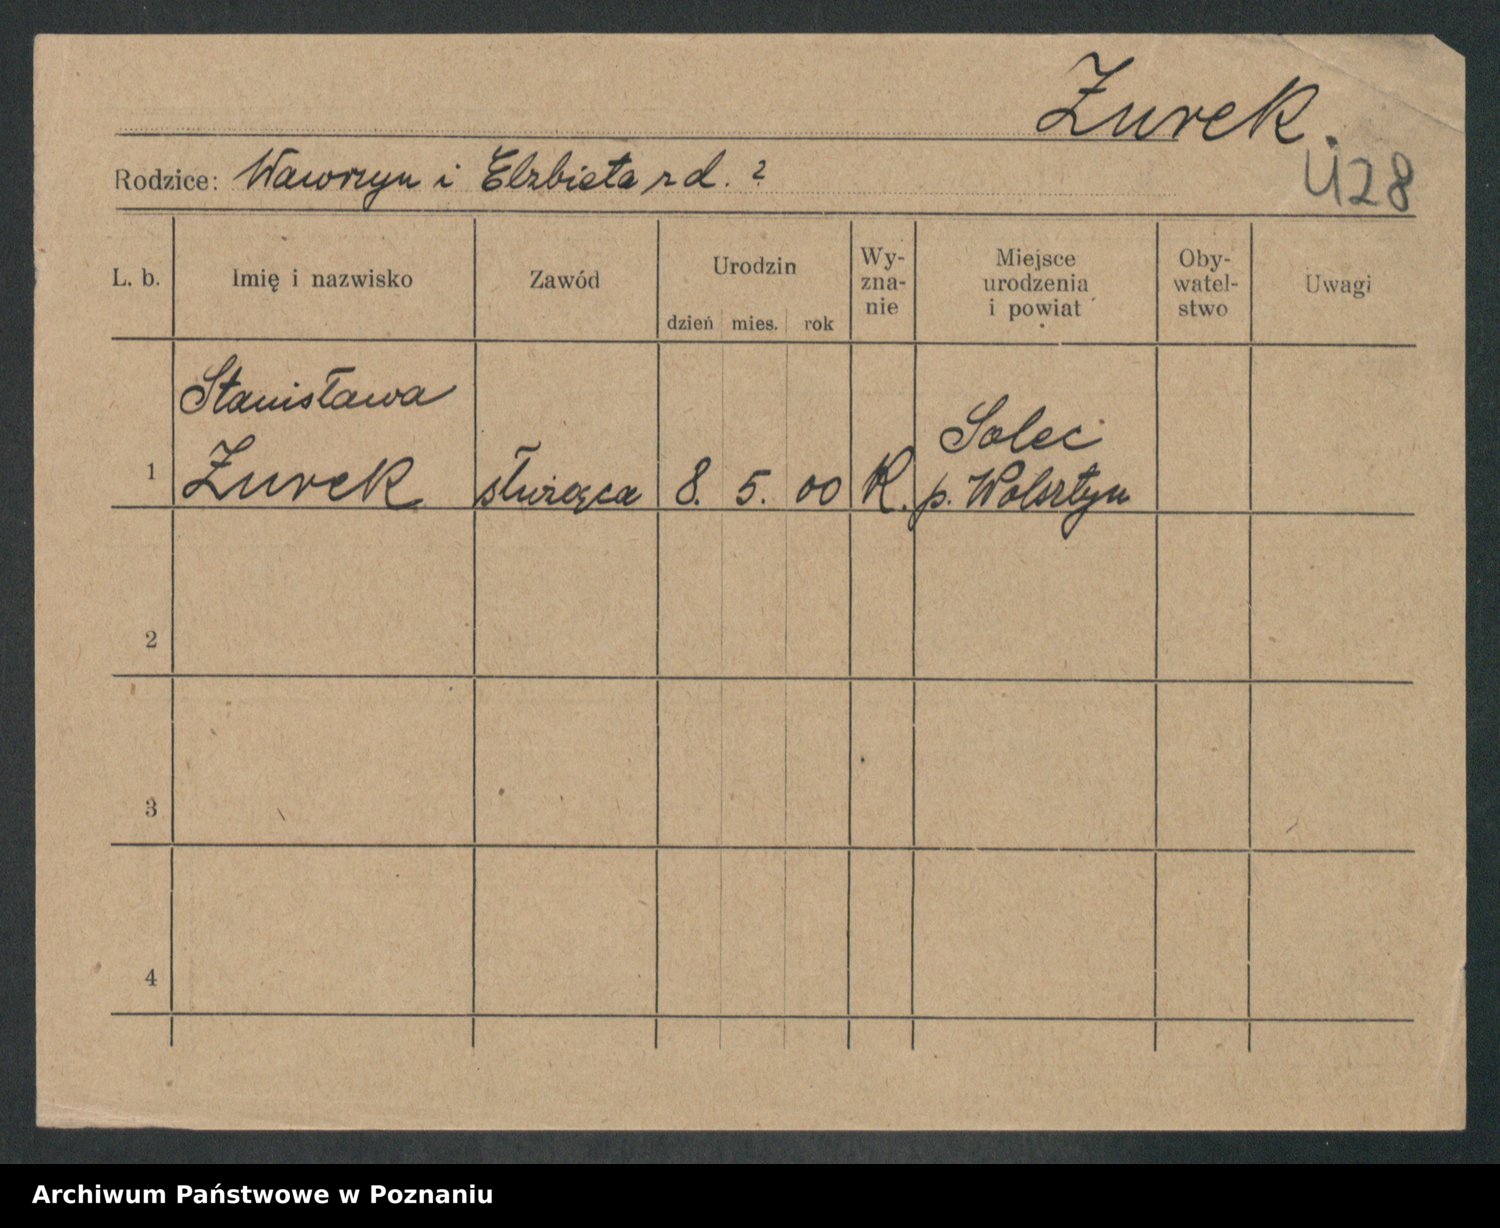 Żurek.
U28
Rodzice: Wawrzyn i Elżbieta z d. ?
L. b. Imię i nazwisko Zawód Urodzin dzień mies. rok Wy-zna-nie Miejsce urodzenia i powiat Oby-watel-stwo Uwagi
Stanisława
1 Żurek służąca 8. 5. 00 K. Solec
p. Wolsztyn
2
3
4
Archiwum Państwowe w Poznaniu